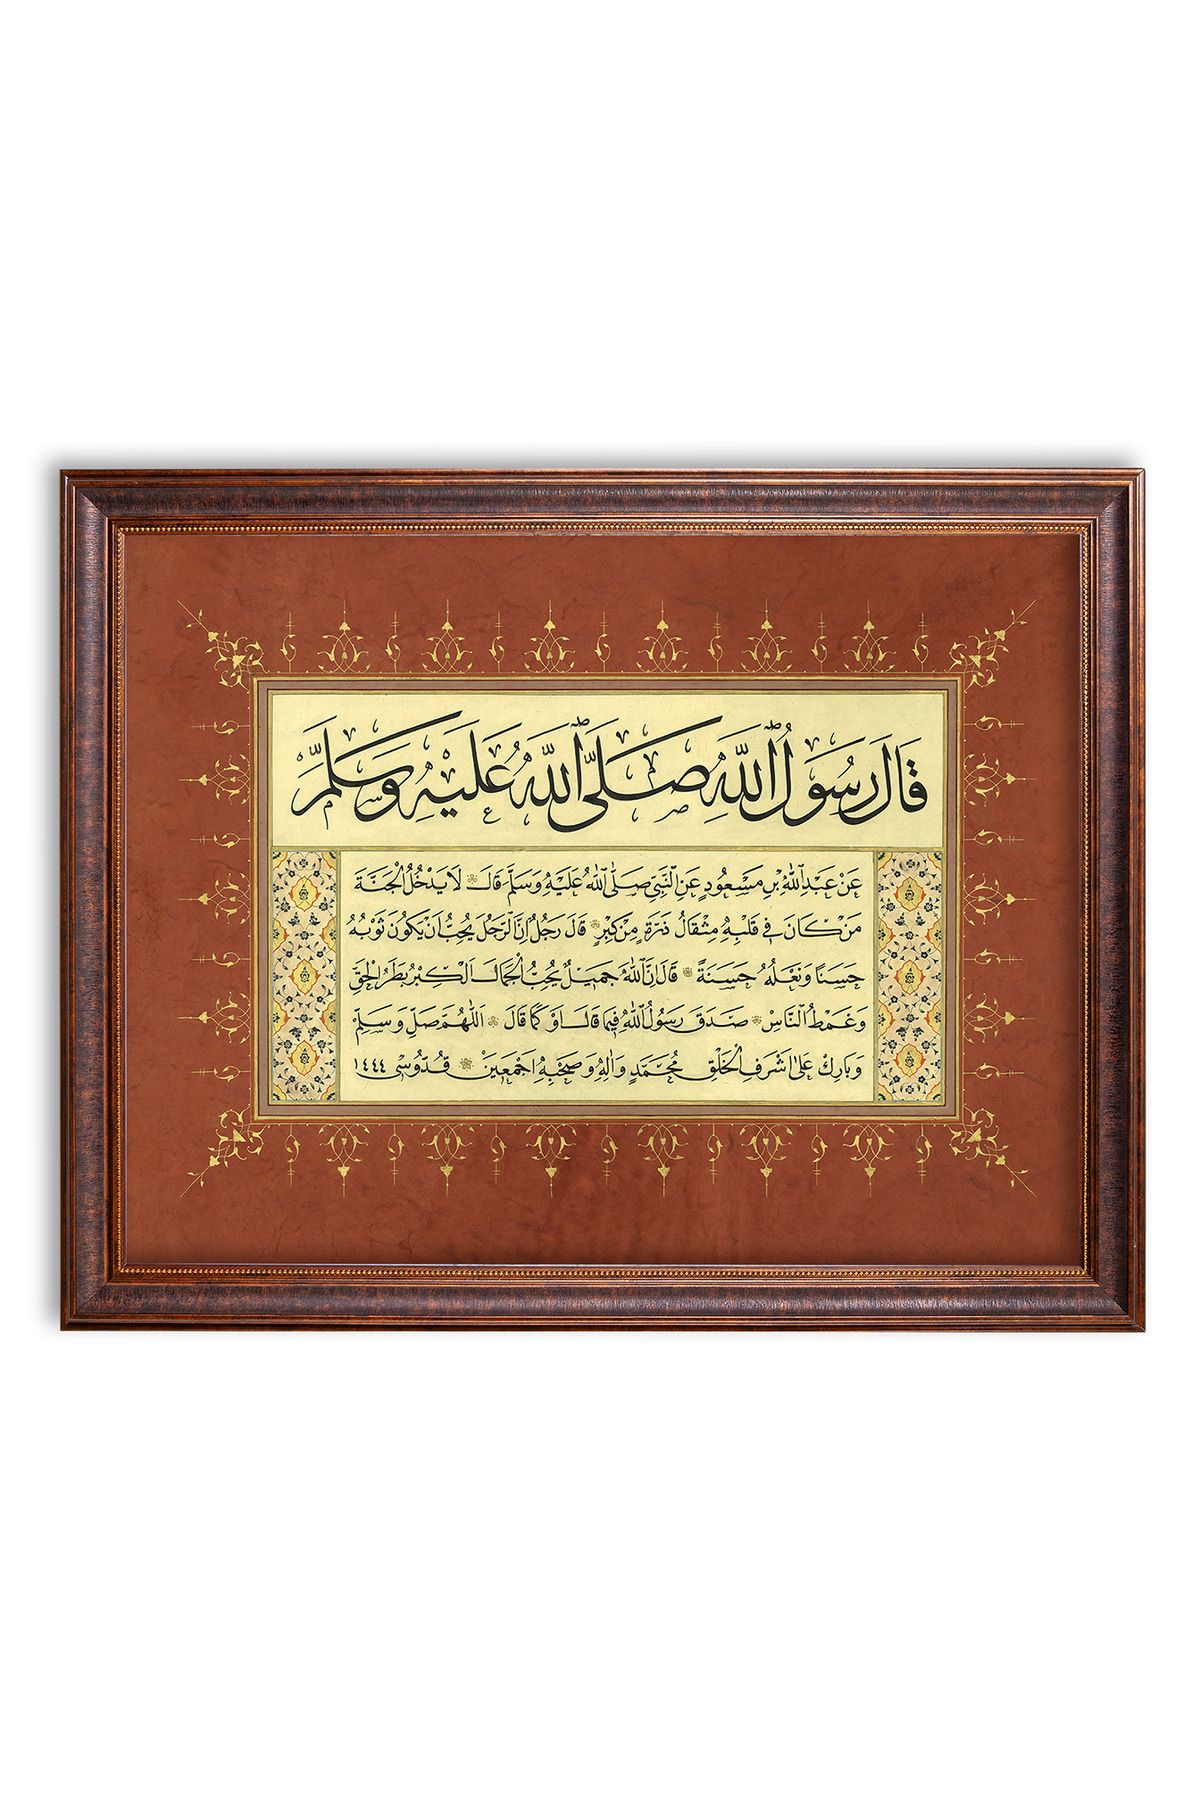 قَالَ رَسُولُ اللّٰهِ صَلَّى اللّٰهُ عَلَيْهِ وَسَلَّمَ
عَنْ عَبْدِ اللّٰهِ بْنِ مَسْعُودٍ عَنِ النَّبِيِّ صَلَّى اللّٰهُ عَلَيْهِ وَسَلَّمَ قَالَ لَا يَدْخُلُ الْجَنَّةَ
مَنْ كَانَ فِي قَلْبِهِ مِثْقَالُ ذَرَّةٍ مِنْ كِبْرٍ قَالَ رَجُلٌ إِنَّ الرَّجُلَ يُحِبُّ أَنْ يَكُونَ ثَوْبُهُ
حَسَنًا وَنَعْلُهُ حَسَنَةً قَالَ إِنَّ اللّٰهَ جَمِيلٌ يُحِبُّ الْجَمَالَ الْكِبْرُ بَطَرُ الْحَقِّ
وَغَمْطُ النَّاسِ صَدَقَ رَسُولُ اللّٰهِ فِيمَا قَالَ أَوْ كَمَا قَالَ اَللّٰهُمَّ صَلِّ وَسَلِّمْ
وَبَارِكْ عَلَى أَشْرَفِ الْخَلْقِ مُحَمَّدٍ وَاٰلِهِ وَصَحْبِهِ أَجْمَعِينَ قُدُّوسِي ١٤٤٤